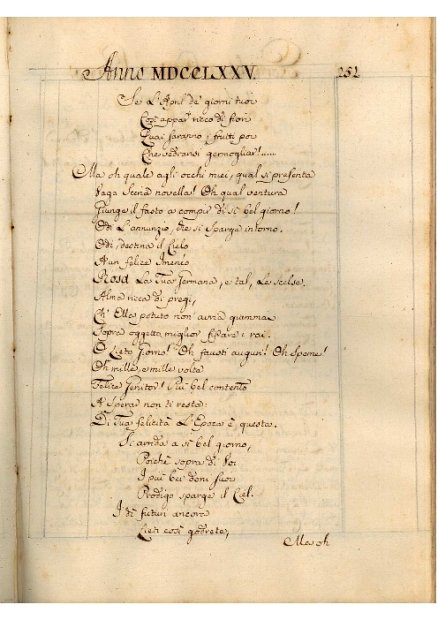 Anno MDCCLXXV.
252
Se L'April de' giorni tuoi
Così appar ricco di fiori
Quai saranno i frutti poi
Che vedransi germogliar!.....
Ma oh quale agli occhi miei, qual si presenta
Vaga Scena novella! Oh qual ventura
Giunge il fasto a compir di sì bel giorno!
Odi L'annunzio, che si sparge intorno.
Odi, destina il Cielo
A un felice Imeneo
Rosa La Tua Germana, e tal, Le scelse
Alma ricca di pregi,
Ch' Ella potuto non avria giammai
Sopra oggetto miglior fissare i rai.
O Lieto Giorno! Oh fausti auguri! Oh Speme!
Oh mille, e mille volte
Felice Genitor! Più bel contento
A Sperar non ti resta:
Di Tua felicità L'Epoca è questa.
Si arrida a sì bel giorno,
Poichè sopra di Voi
I più bei doni suoi
Prodigo sparge il Ciel.
I dì futuri ancora
Lieti così godrete,
Ma oh